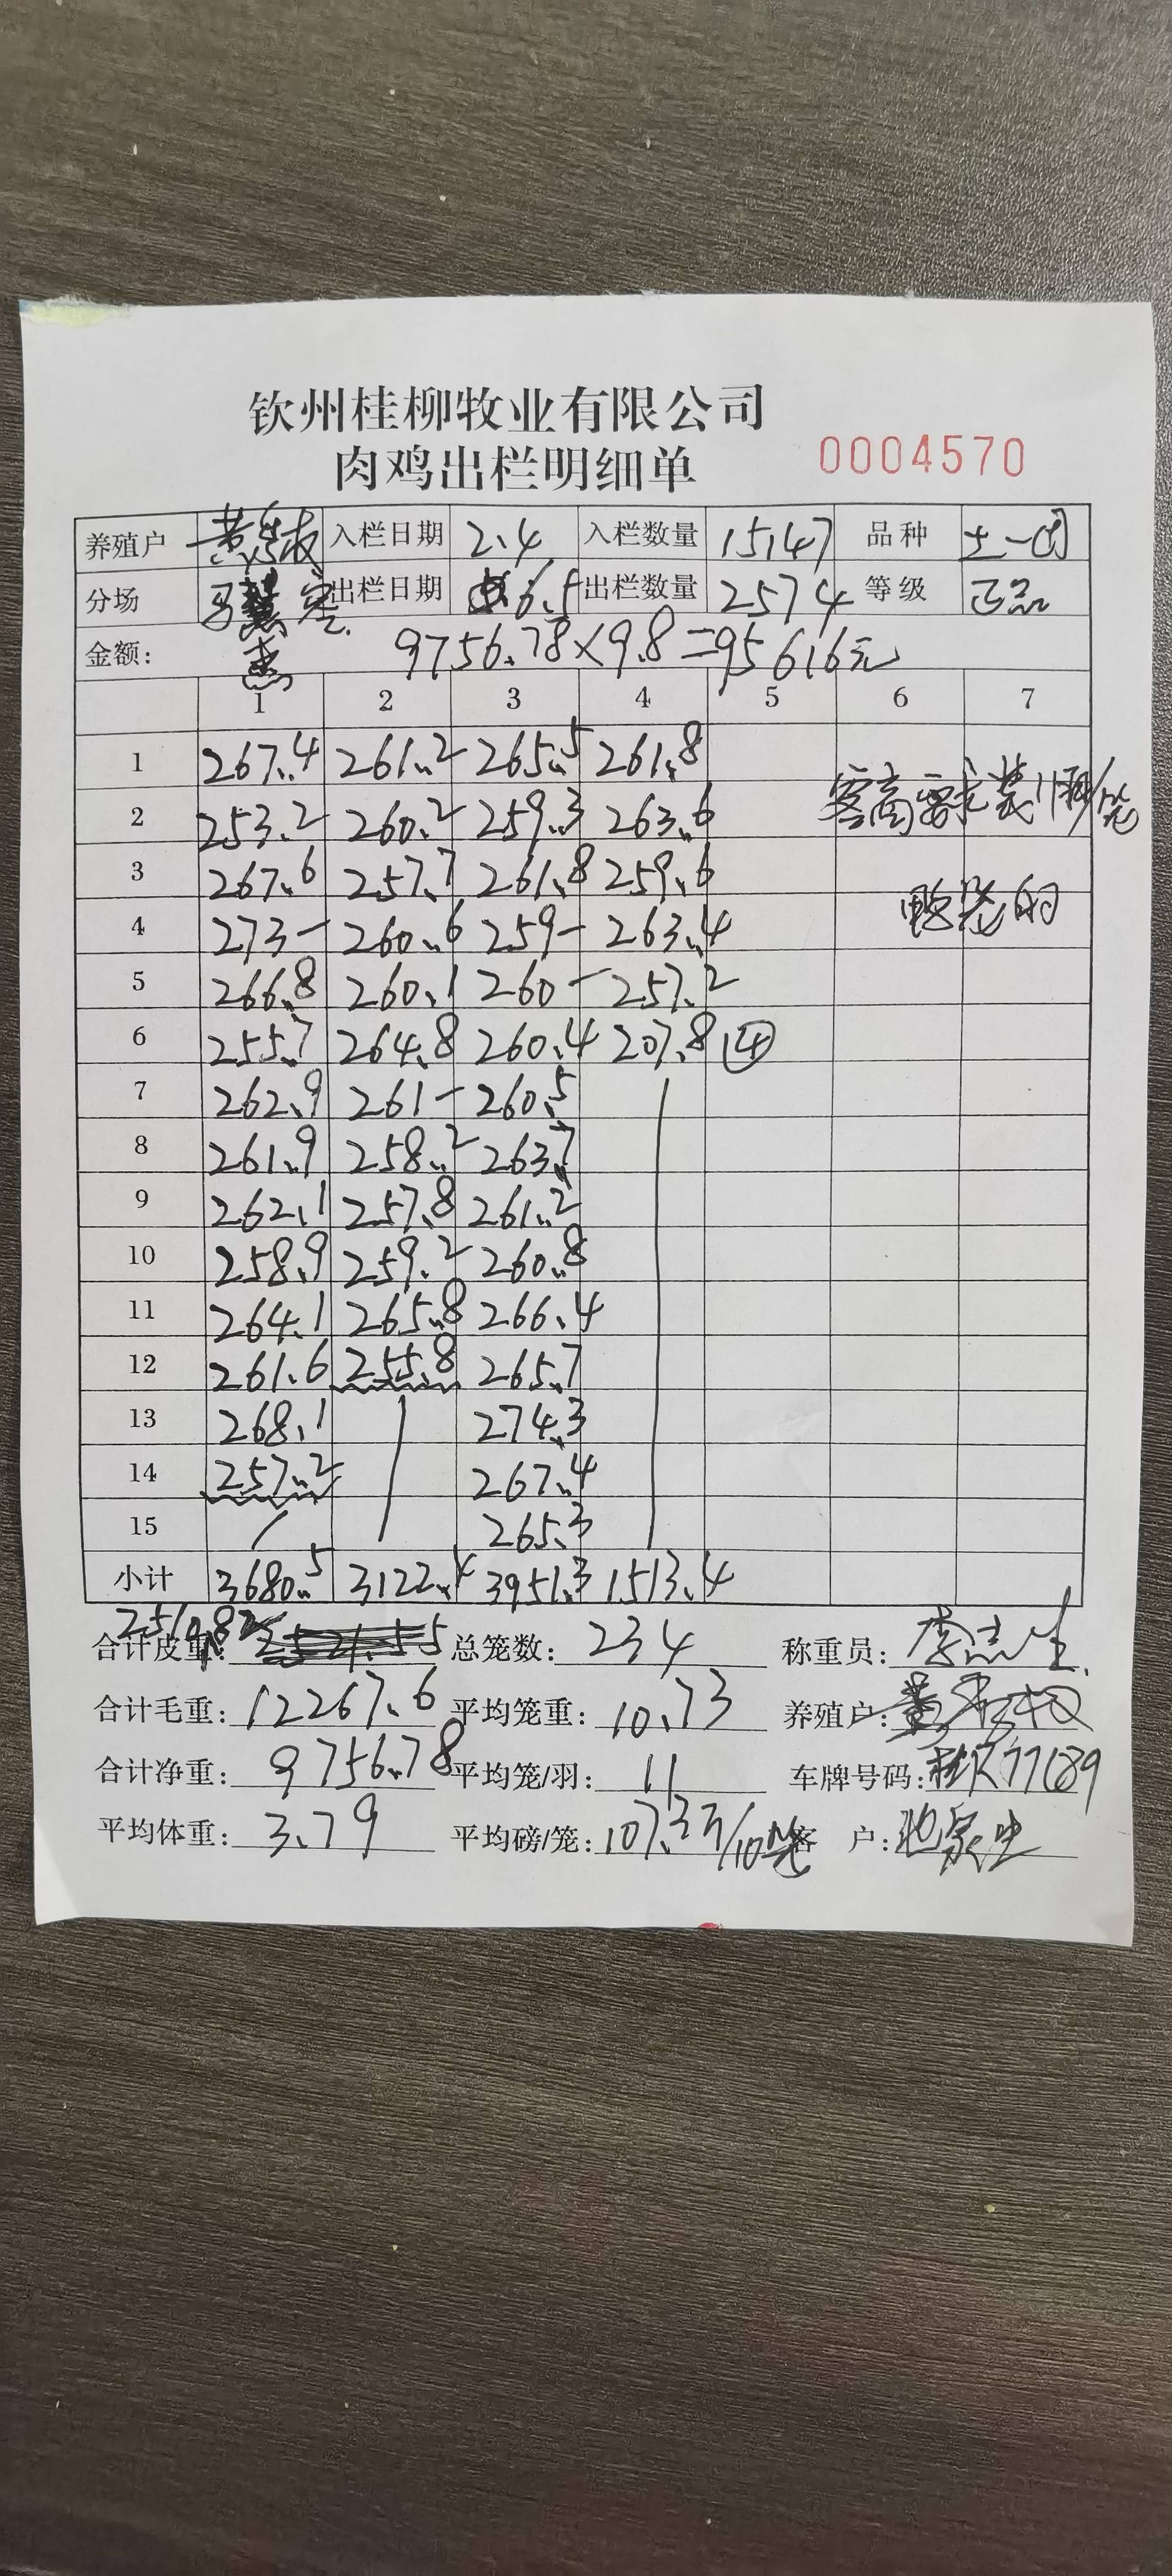 钦州桂柳牧业有限公司
肉鸡出栏明细单 0004570
养殖户 入栏日期 2.4 入栏数量 15147 品种 土一
分场 出栏日期 6.5 出栏数量 2574 等级 正品
金额: 9756.78×9.8=95616元
1 2 3 4 5 6 7
1 267.4 261.2 265.5 261.8
2 253.2 260.2 259.3 263.6 客商要求装
3 267.6 257.7 261.8 259.6
4 273- 260.6 259- 263.4 的
5 266.8 260.1 260- 257.2
6 255.7 264.8 260.4 207.8 ④
7 262.9 261- 260.5
8 261.9 258.2 263.7
9 262.1 257.8 261.2
10 258.9 259.2 260.8
11 264.1 265.8 266.4
12 261.6 255.8 265.7
13 268.1 274.3
14 257.2 267.4
15 / 265.3
小计 3680.5 3122.4 3951.3 1513.4
合计皮重: 2510.82 总笼数: 234 称重员: 李志生
合计毛重: 12267.6 平均笼重: 10.73 养殖户:
合计净重: 9756.78 平均笼/羽: 11 车牌号码: 77689
平均体重: 3.79 平均磅/笼: 107.3斤/10笼 客 户: